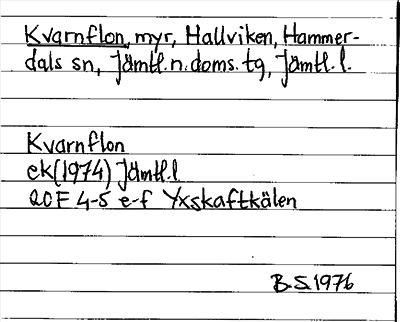 Kvarnflon, myr, Hallviken, Hammer-
dals sn, Jämtl.n.doms.tg, Jämtl.l.
Kvarnflon
ek(1974) Jämtl.l
20F 4-5 e-f Yxskaftkälen
B.S.1976